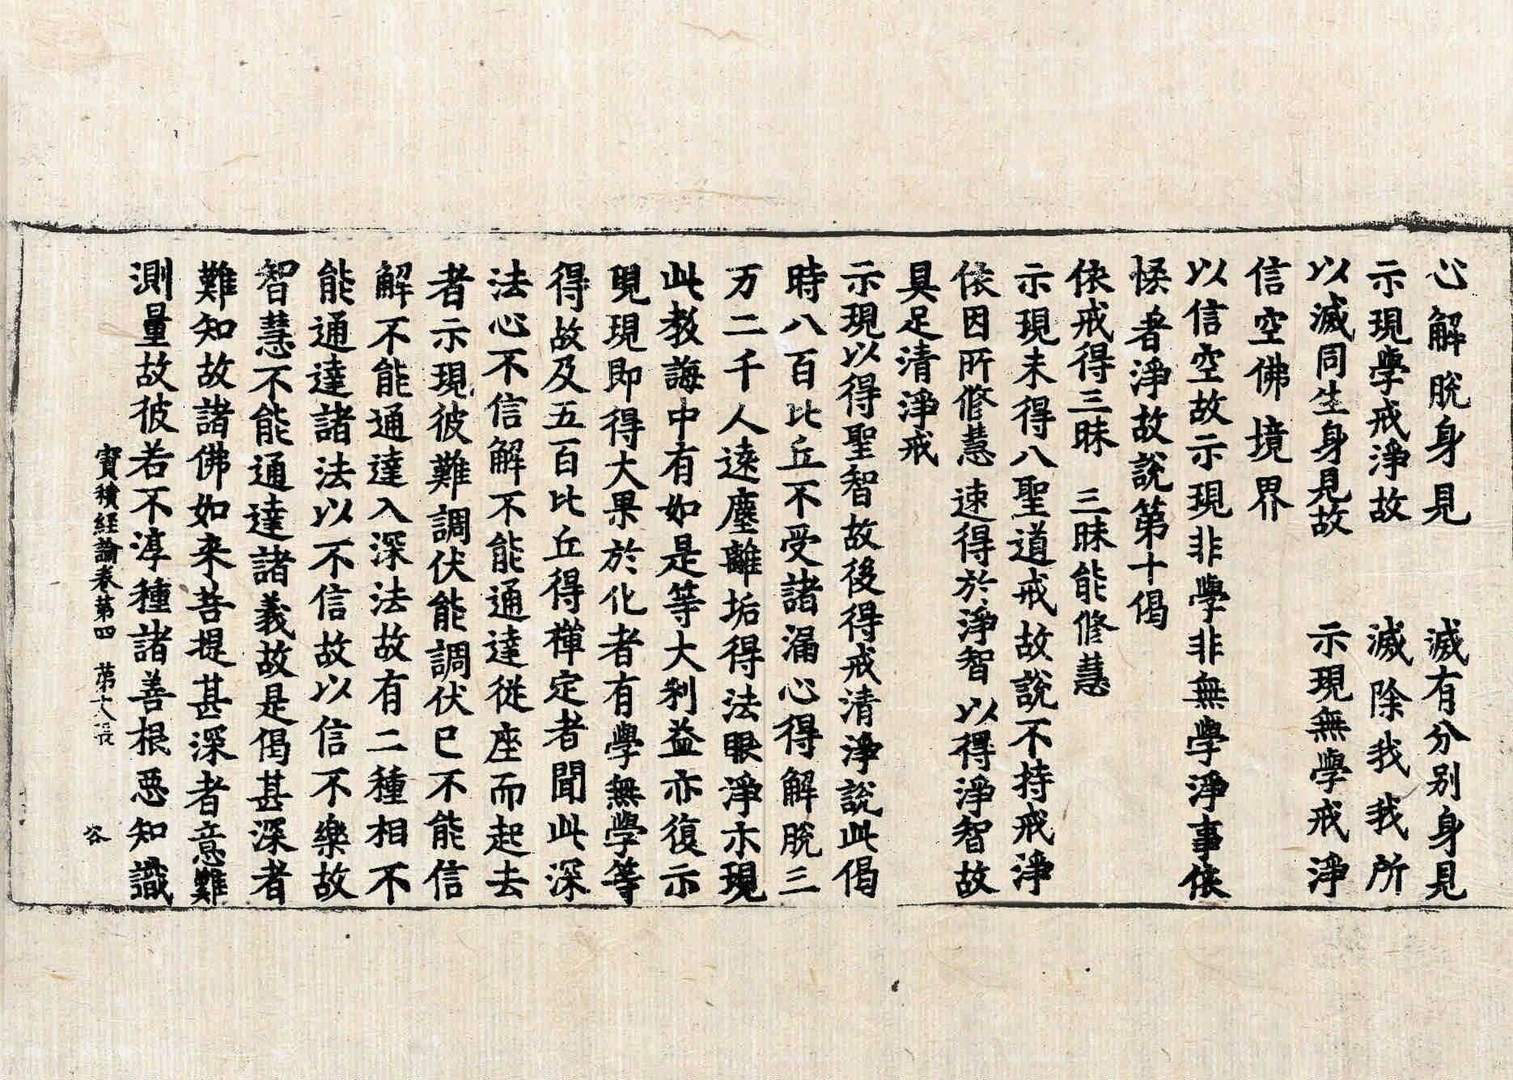 心解脫身見　滅有分別身見
示現學戒淨故　滅除我我所
以滅同生身見故　示現無學戒淨
信空佛境界
以信空故示現非學非無學淨事依
悕者淨故說第十偈
依戒得三昧　三昧能修慧
示現未得八聖道戒故說不持戒淨
依因所修慧　速得於淨智　以得淨智故
具足清淨戒
示現以得聖智故後得戒清淨說此偈
時八百比丘不受諸漏心得解脫三
万二千人遠塵離垢得法眼淨示現
此教誨中有如是等大利益亦復示
現現即得大果於化者有學無學等
得故及五百比丘得禪定者聞此深
法心不信解不能通達從座而起去
者示現彼難調伏能調伏已不能信
解不能通達入深法故有二種相不
能通達諸法以不信故以信不樂故
智慧不能通達諸義故是偈甚深者
難知故諸佛如來菩提甚深者意難
測量故彼若不淳種諸善根惡知識
寶積經論卷第四　第十八張　谷